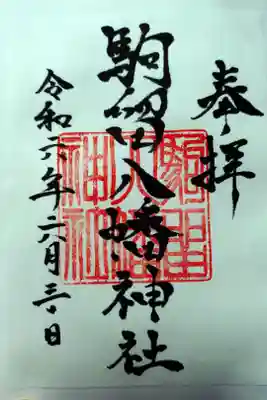 奉拝
駒留八幡神社
駒留八幡神社
令和六年六月三十日